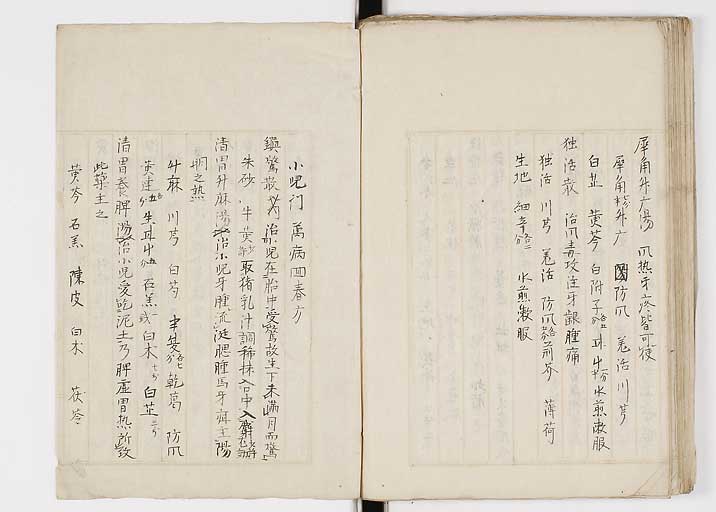 犀角升广湯 爪热牙疼皆可使
犀角 升广 防爪 羗活 川芎
白芷 黄芩 白附子 水煎漱服
独活散 治爪毒攻注牙齦腫痛
独活 川芎 羗活 防爪 荊芥 薄荷
生地 細辛 水煎漱服
小児门 萬病回春方
鎮驚散 治小児在胎中受驚故生下未満月而驚
朱砂 牛黄 取猪乳汁調稀抹入口中入麝
清胃升麻湯 治小児牙腫流涎腮腫馬牙疳主陽
明之热
升麻 川芎 白芍 半 乾葛 防爪
黄連 生耳 石羔 白术 白芷
清胃养脾湯 治小児爱吃泥土乃脾虚胃热所致
此薬主之
黄芩 石羔 陳皮 白术 茯苓